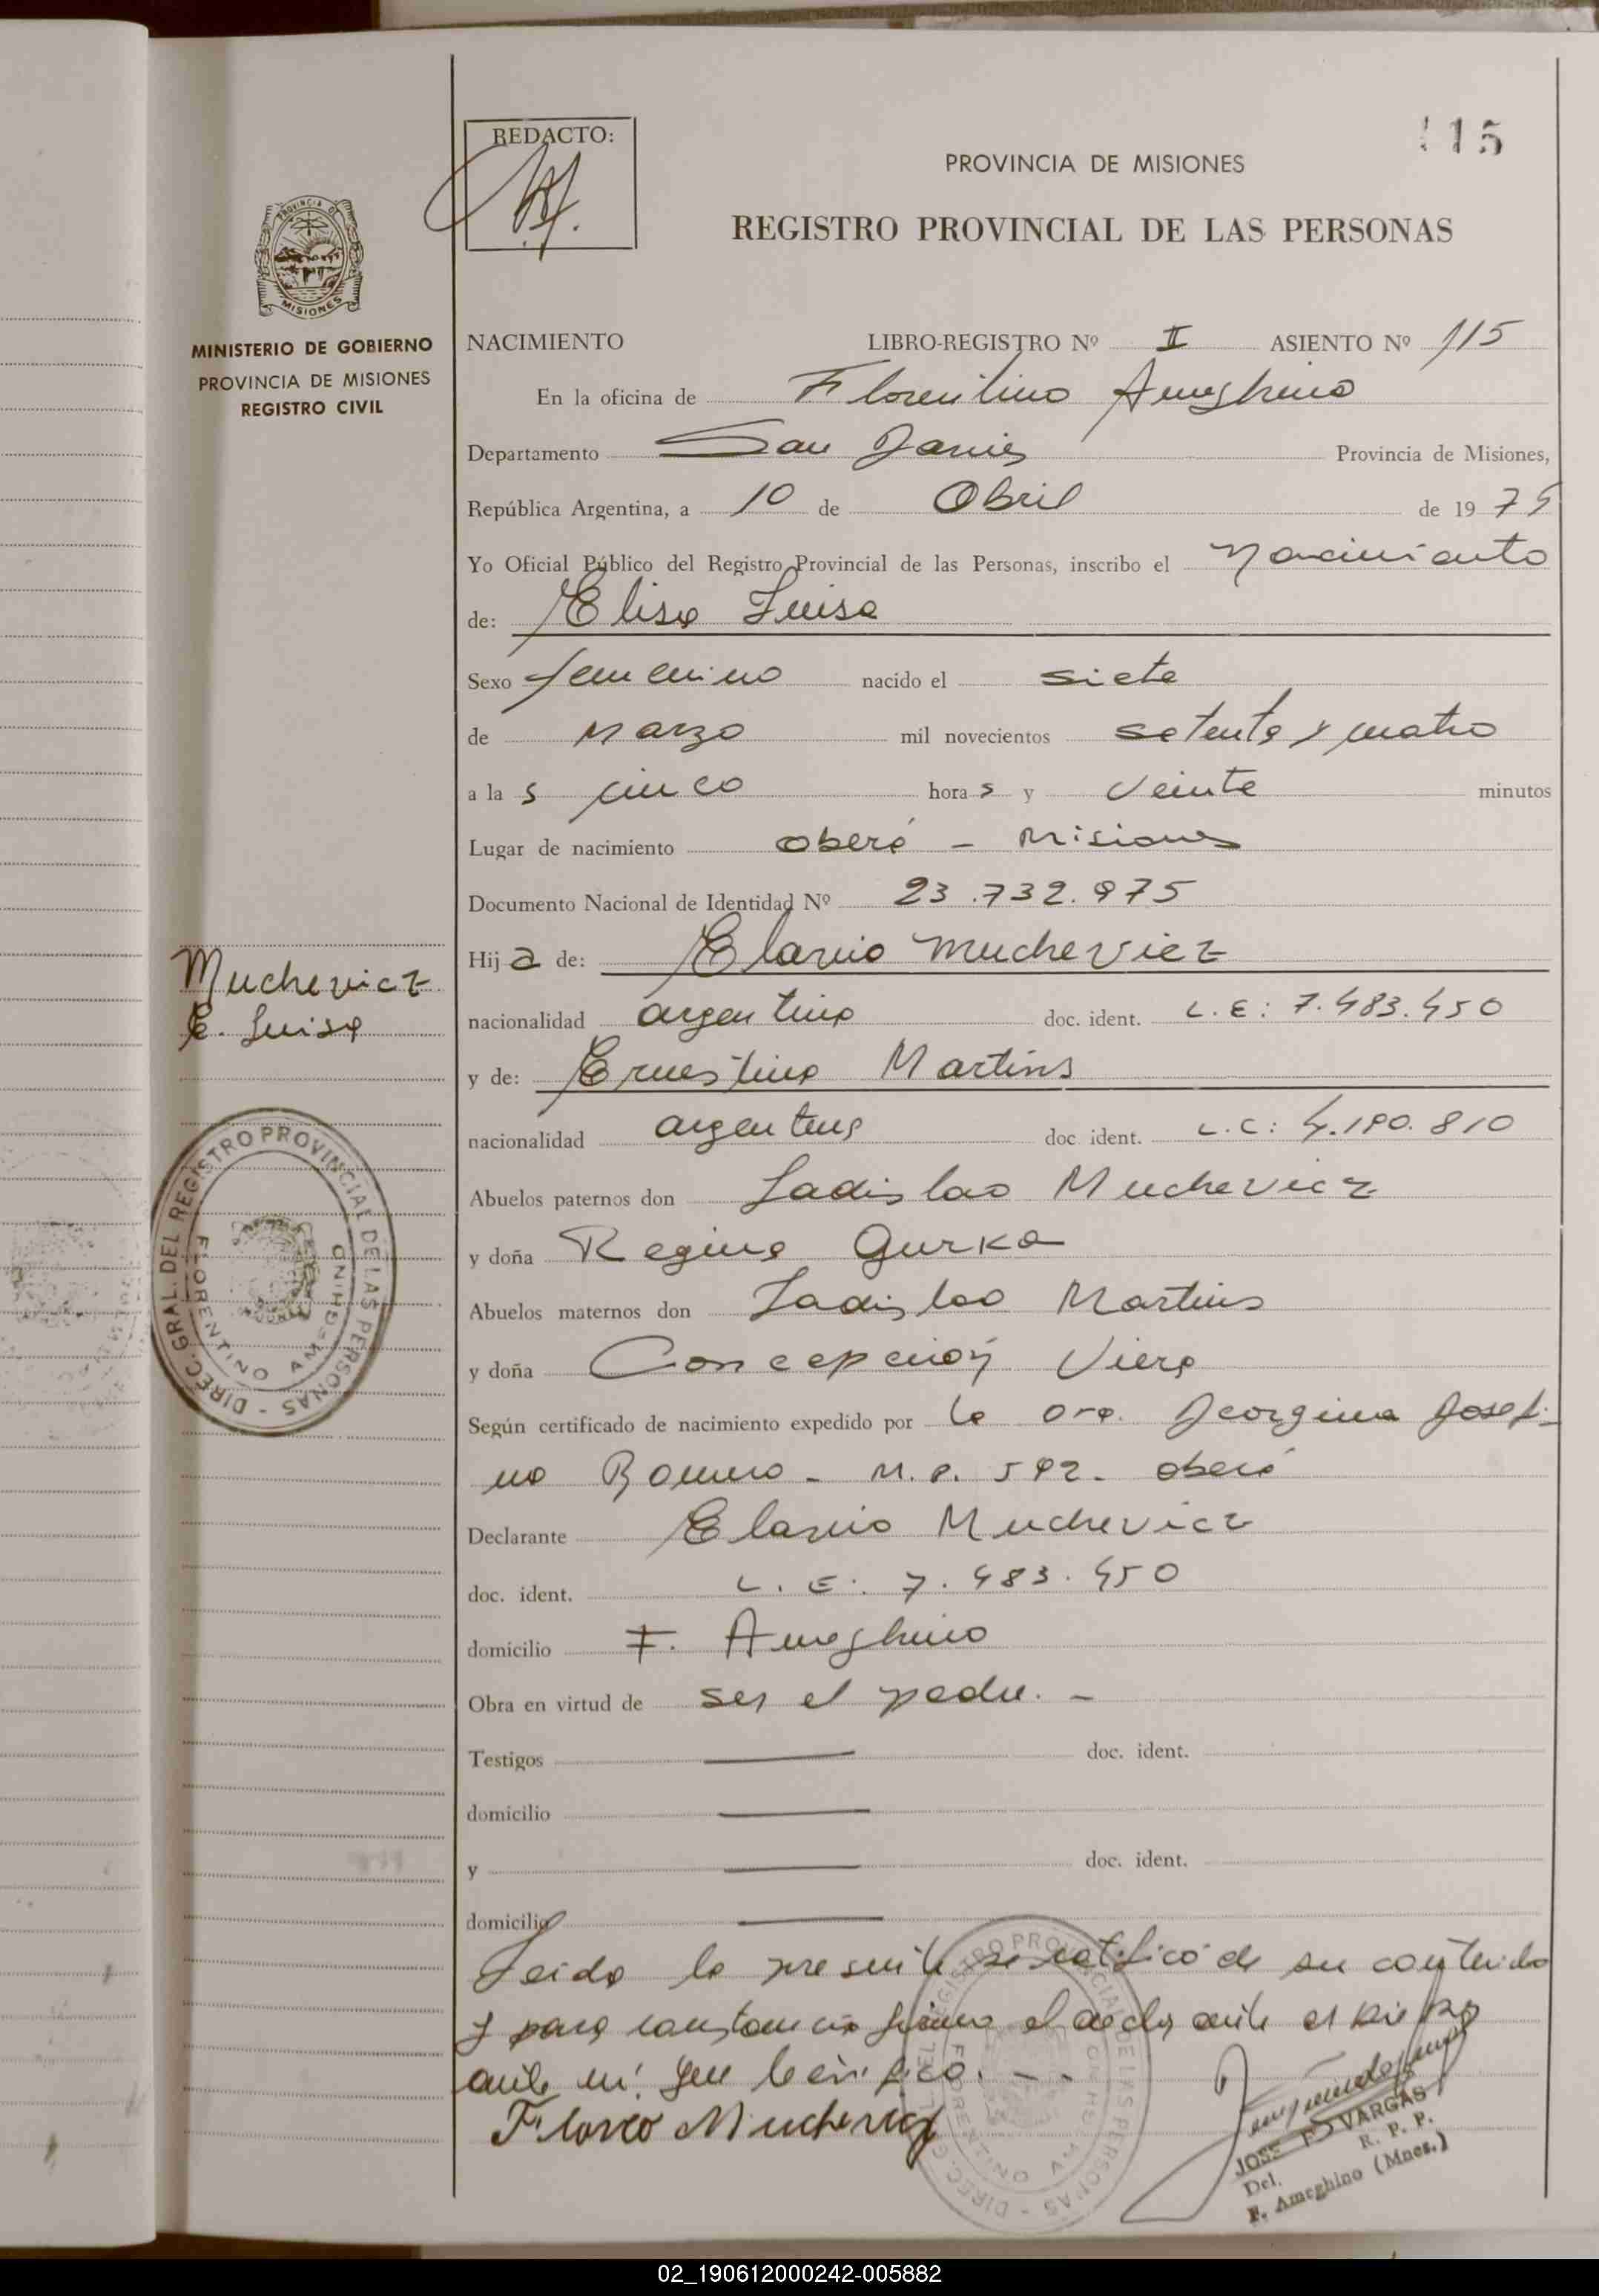 115
REDACTO:
PROVINCIA DE MISIONES
REGISTRO PROVINCIAL DE LAS PERSONAS
PROVINCIA DE
MISIONES
MINISTERIO DE GOBIERNO
PROVINCIA DE MISIONES
REGISTRO CIVIL
NACIMIENTO LIBRO-REGISTRO Nº II ASIENTO Nº 115
En la oficina de Florentino Ameghino
Departamento San Javier Provincia de Misiones,
República Argentina, a 10 de Abril de 1975
Yo Oficial Público del Registro Provincial de las Personas, inscribo el Nacimiento
de: Elisa Luisa
Sexo femenino nacido el siete
de Marzo mil novecientos setenta y cuatro
a la s cinco hora s y veinte minutos
Lugar de nacimiento Oberá - Misiones
Documento Nacional de Identidad Nº 23.732.975
Hij a de: Elavio Muchevicz
Muchevicz
E. Luisa
nacionalidad argentino doc. ident. L.E: 7.483.450
y de: Ernestina Martins
nacionalidad argentina doc ident. L.C: 4.190.810
Abuelos paternos don Ladislao Muchevicz
y doña Regina Gurka
Abuelos maternos don Ladislao Martins
y doña Concepción Viera
Según certificado de nacimiento expedido por la Dra. Georgina Josefi-
na Romero - M.P. 592 - Oberá
Declarante Elavio Muchevicz
doc. ident. L.E: 7.483.450
domicilio F. Ameghino
Obra en virtud de ser el padre. -
Testigos doc. ident.
domicilio
y doc. ident.
domicilio
Leida la presente se ratificó de su contenido
y para constancia firma el acta ante
ante mí que certifico. - -
Flavio Muchevicz
DIREC. GRAL. DEL REGISTRO PROVINCIAL DE LAS PERSONAS
FLORENTINO AMEGHINO
DIREC. G DEL REGISTRO PROVINCIAL DE LAS PERSONAS
FLORENTINO AMEGHINO
JOSE F. VARGAS
Del. R. P. P.
F. Ameghino (Mnes.)
02_190612000242-005882